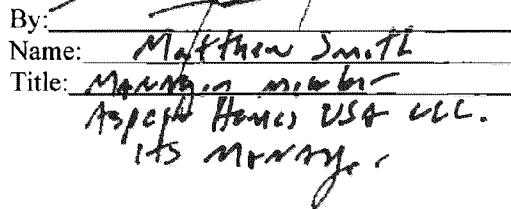 By:
Name: Matthew Smith
Title: Managin member
Aspect Homes USA LLC.
its Manager